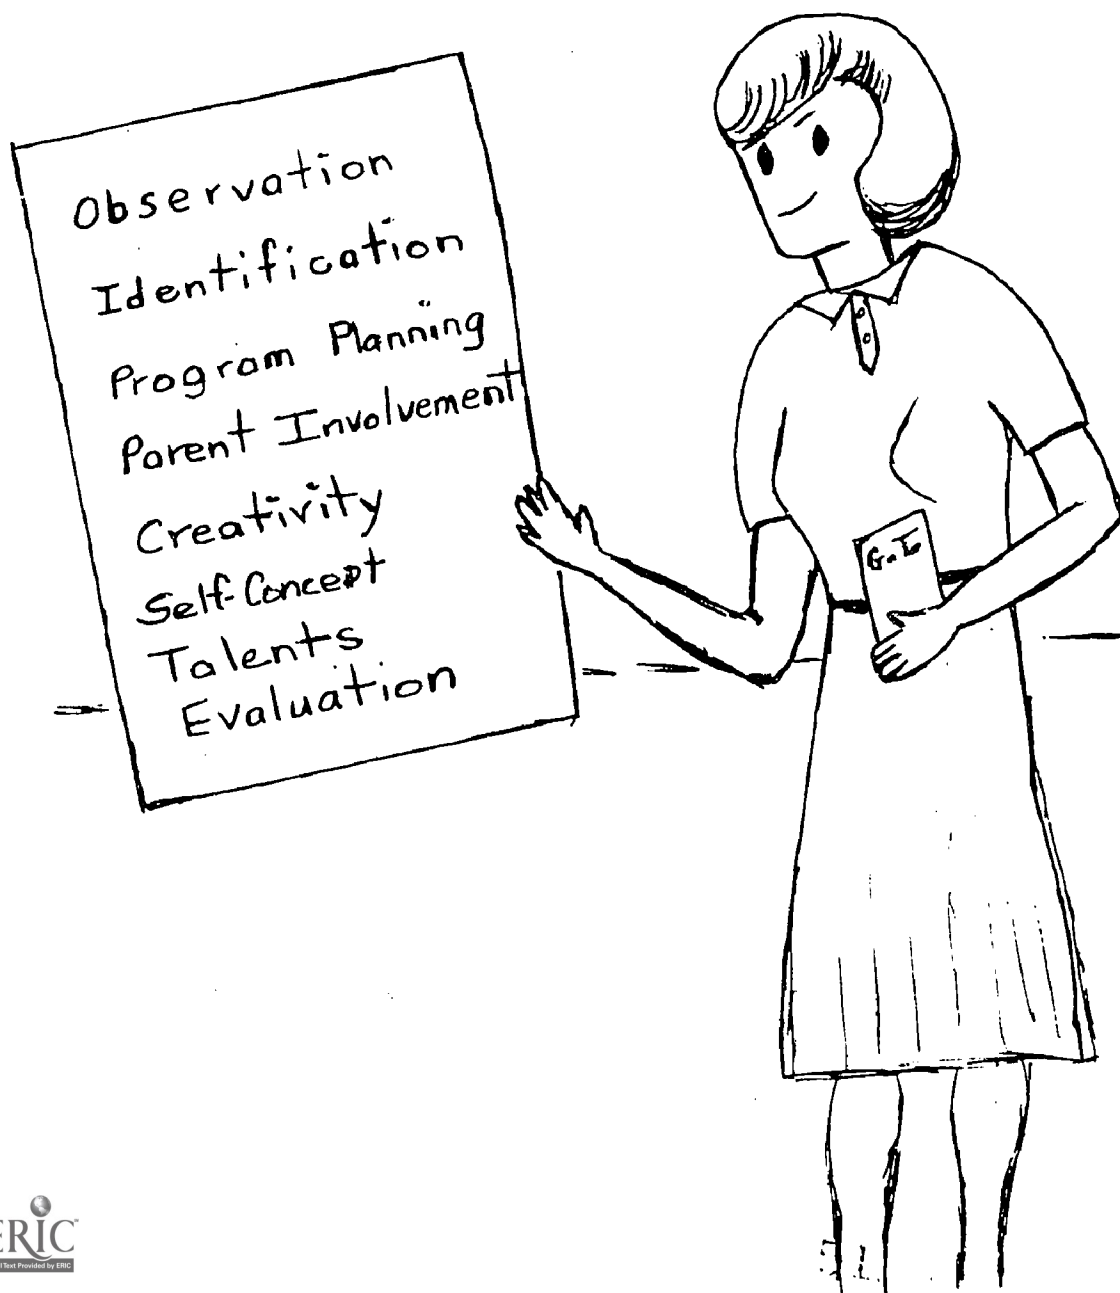 Observation
Identification
Program Planning
Parent Involvement
Creativity
Self-Concept
Talents
Evaluation
ERIC
Full Text Provided by ERIC